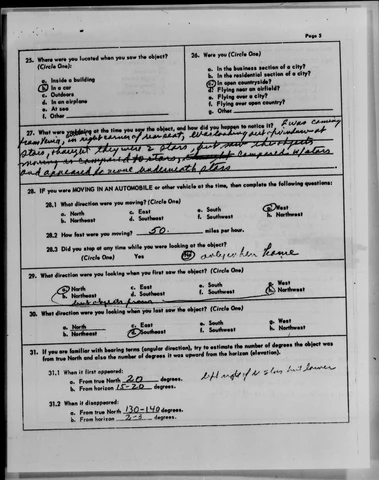 Page 5
25. Where were you located when you saw the object?
(Circle One):
a. Inside a building
b. In a car
c. Outdoors
d. In an airplane
e. At sea
f. Other
26. Were you (Circle One)
a. In the business section of a city?
b. In the residential section of a city?
c. In open countryside?
d. Flying near an airfield?
e. Flying over a city?
f. Flying over open country?
g. Other
27. What were you doing at the time you saw the object, and how did you happen to notice it? I was coming
from in right corner of rear seat, I was looking out window at
stars, thought they were 2 stars, but saw the objects
moving as compared to stars, compared w/stars
and appeared to move underneath stars
28. IF you were MOVING IN AN AUTOMOBILE or other vehicle at the time, then complete the following questions:
28.1 What direction were you moving? (Circle One)
a. North
b. Northeast
c. East
d. Southeast
e. South
f. Southwest
g. West
h. Northwest
28.2 How fast were you moving? 50. miles per hour.
28.3 Did you stop at any time while you were looking at the object?
(Circle One) Yes No only when home
29. What direction were you looking when you first saw the object? (Circle One)
a. North
b. Northeast
c. East
d. Southeast
e. South
f. Southwest
g. West
h. Northwest
30. What direction were you looking when you last saw the object? (Circle One)
a. North
b. Northeast
c. East
d. Southeast
e. South
f. Southwest
g. West
h. Northwest
31. If you are familiar with bearing terms (angular direction), try to estimate the number of degrees the object was
from true North and also the number of degrees it was upward from the horizon (elevation).
31.1 When it first appeared:
a. From true North 20 degrees.
b. From horizon 15-20 degrees.
31.2 When it disappeared:
a. From true North 130-140 degrees.
b. From horizon 2-3 degrees.